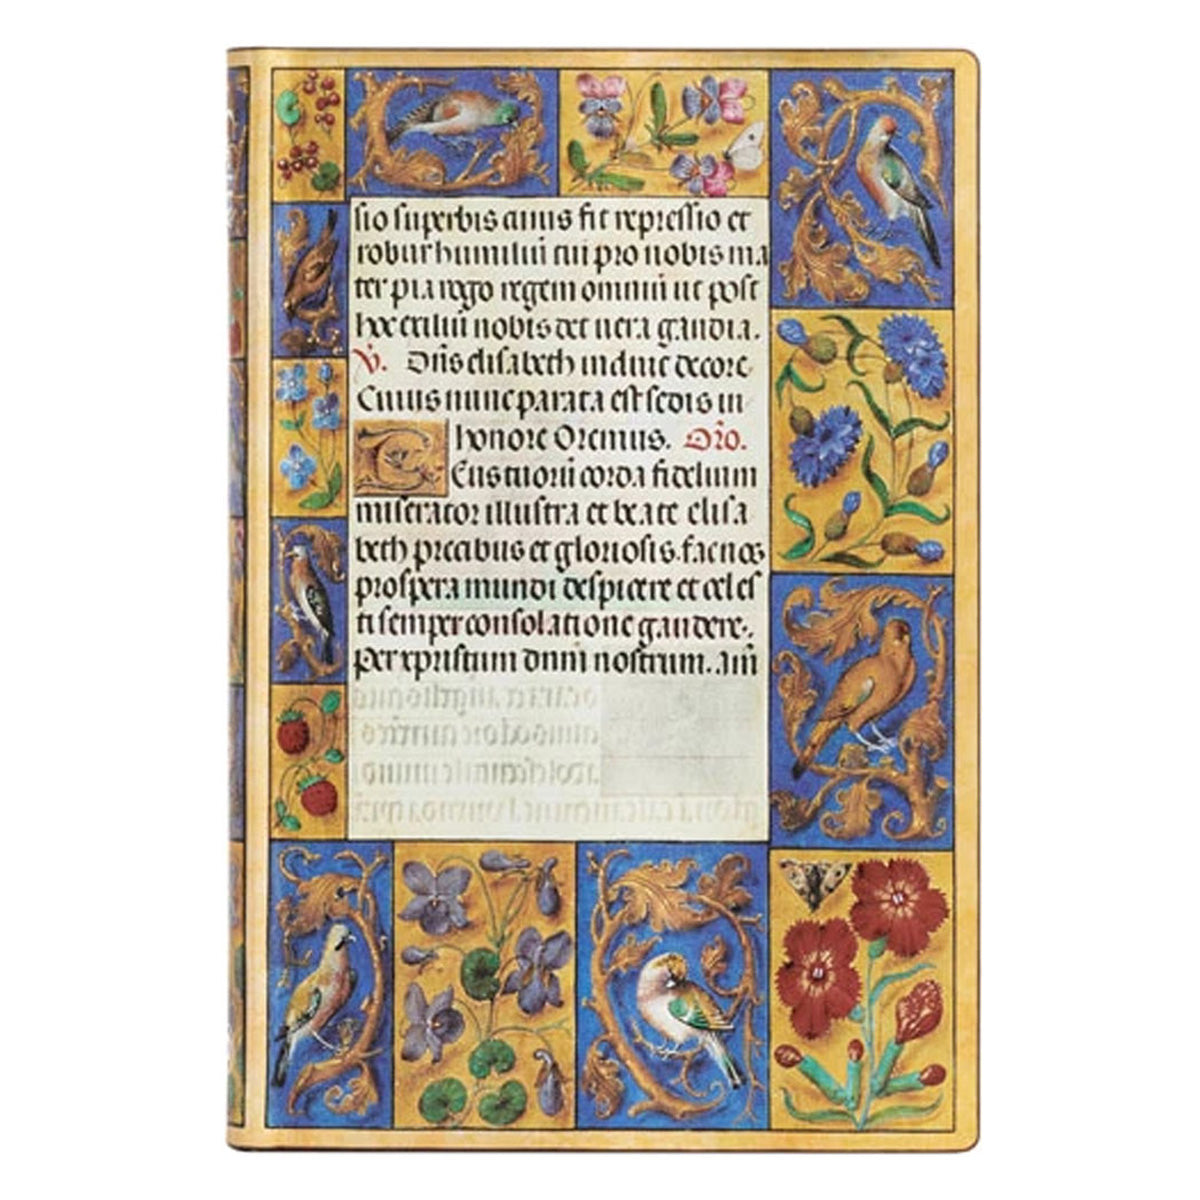 sio superbis cuius fit repressio et
robur humiliū cui pro nobis ma
ter pia rogo regem omniū ut post
hoc exiliū nobis det uera gaudia.
V. Diffusa elisabeth induit decore
Cuius nunc parata est sedis in
honore Oremus. Oro.
Deus tuorū corda fidelium
miserator illustra et beate elisa
beth precibus et gloriosis. fac nos
prospera mundi despicere et celes
ti semper consolatione gaudere.
Per xpristum dnm nostrum. Am